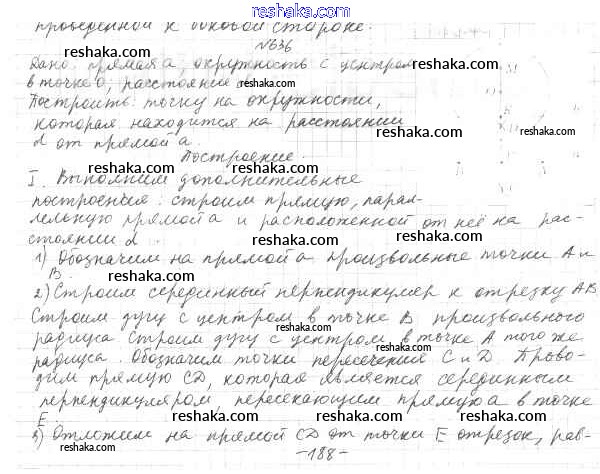 www.reshaka.com
проведенной к боковой стороне.
reshaka.com
№636
reshaka.com
Дано: прямая а, окружность с центром
в точке О, расстояние d.
Построить: точку на окружности,
которая находится на расстоянии
d от прямой а.
Построение.
I. Выполним дополнительные
построения: строим прямую, парал-
лельную прямой а и расположенной от неё на рас-
стоянии d.
1) Обозначим на прямой а произвольные точки А и
В.
2) Строим серединный перпендикуляр к отрезку АВ
Строим дугу с центром в точке В произвольного
радиуса. Строим дугу с центром в точке А того же
радиуса. Обозначим точки пересечения С и D. Прово-
дим прямую CD, которая является серединным
перпендикуляром, пересекающим прямую а в точке
Е.
3) Отложим на прямой CD от точки Е отрезок, рав-
-188-